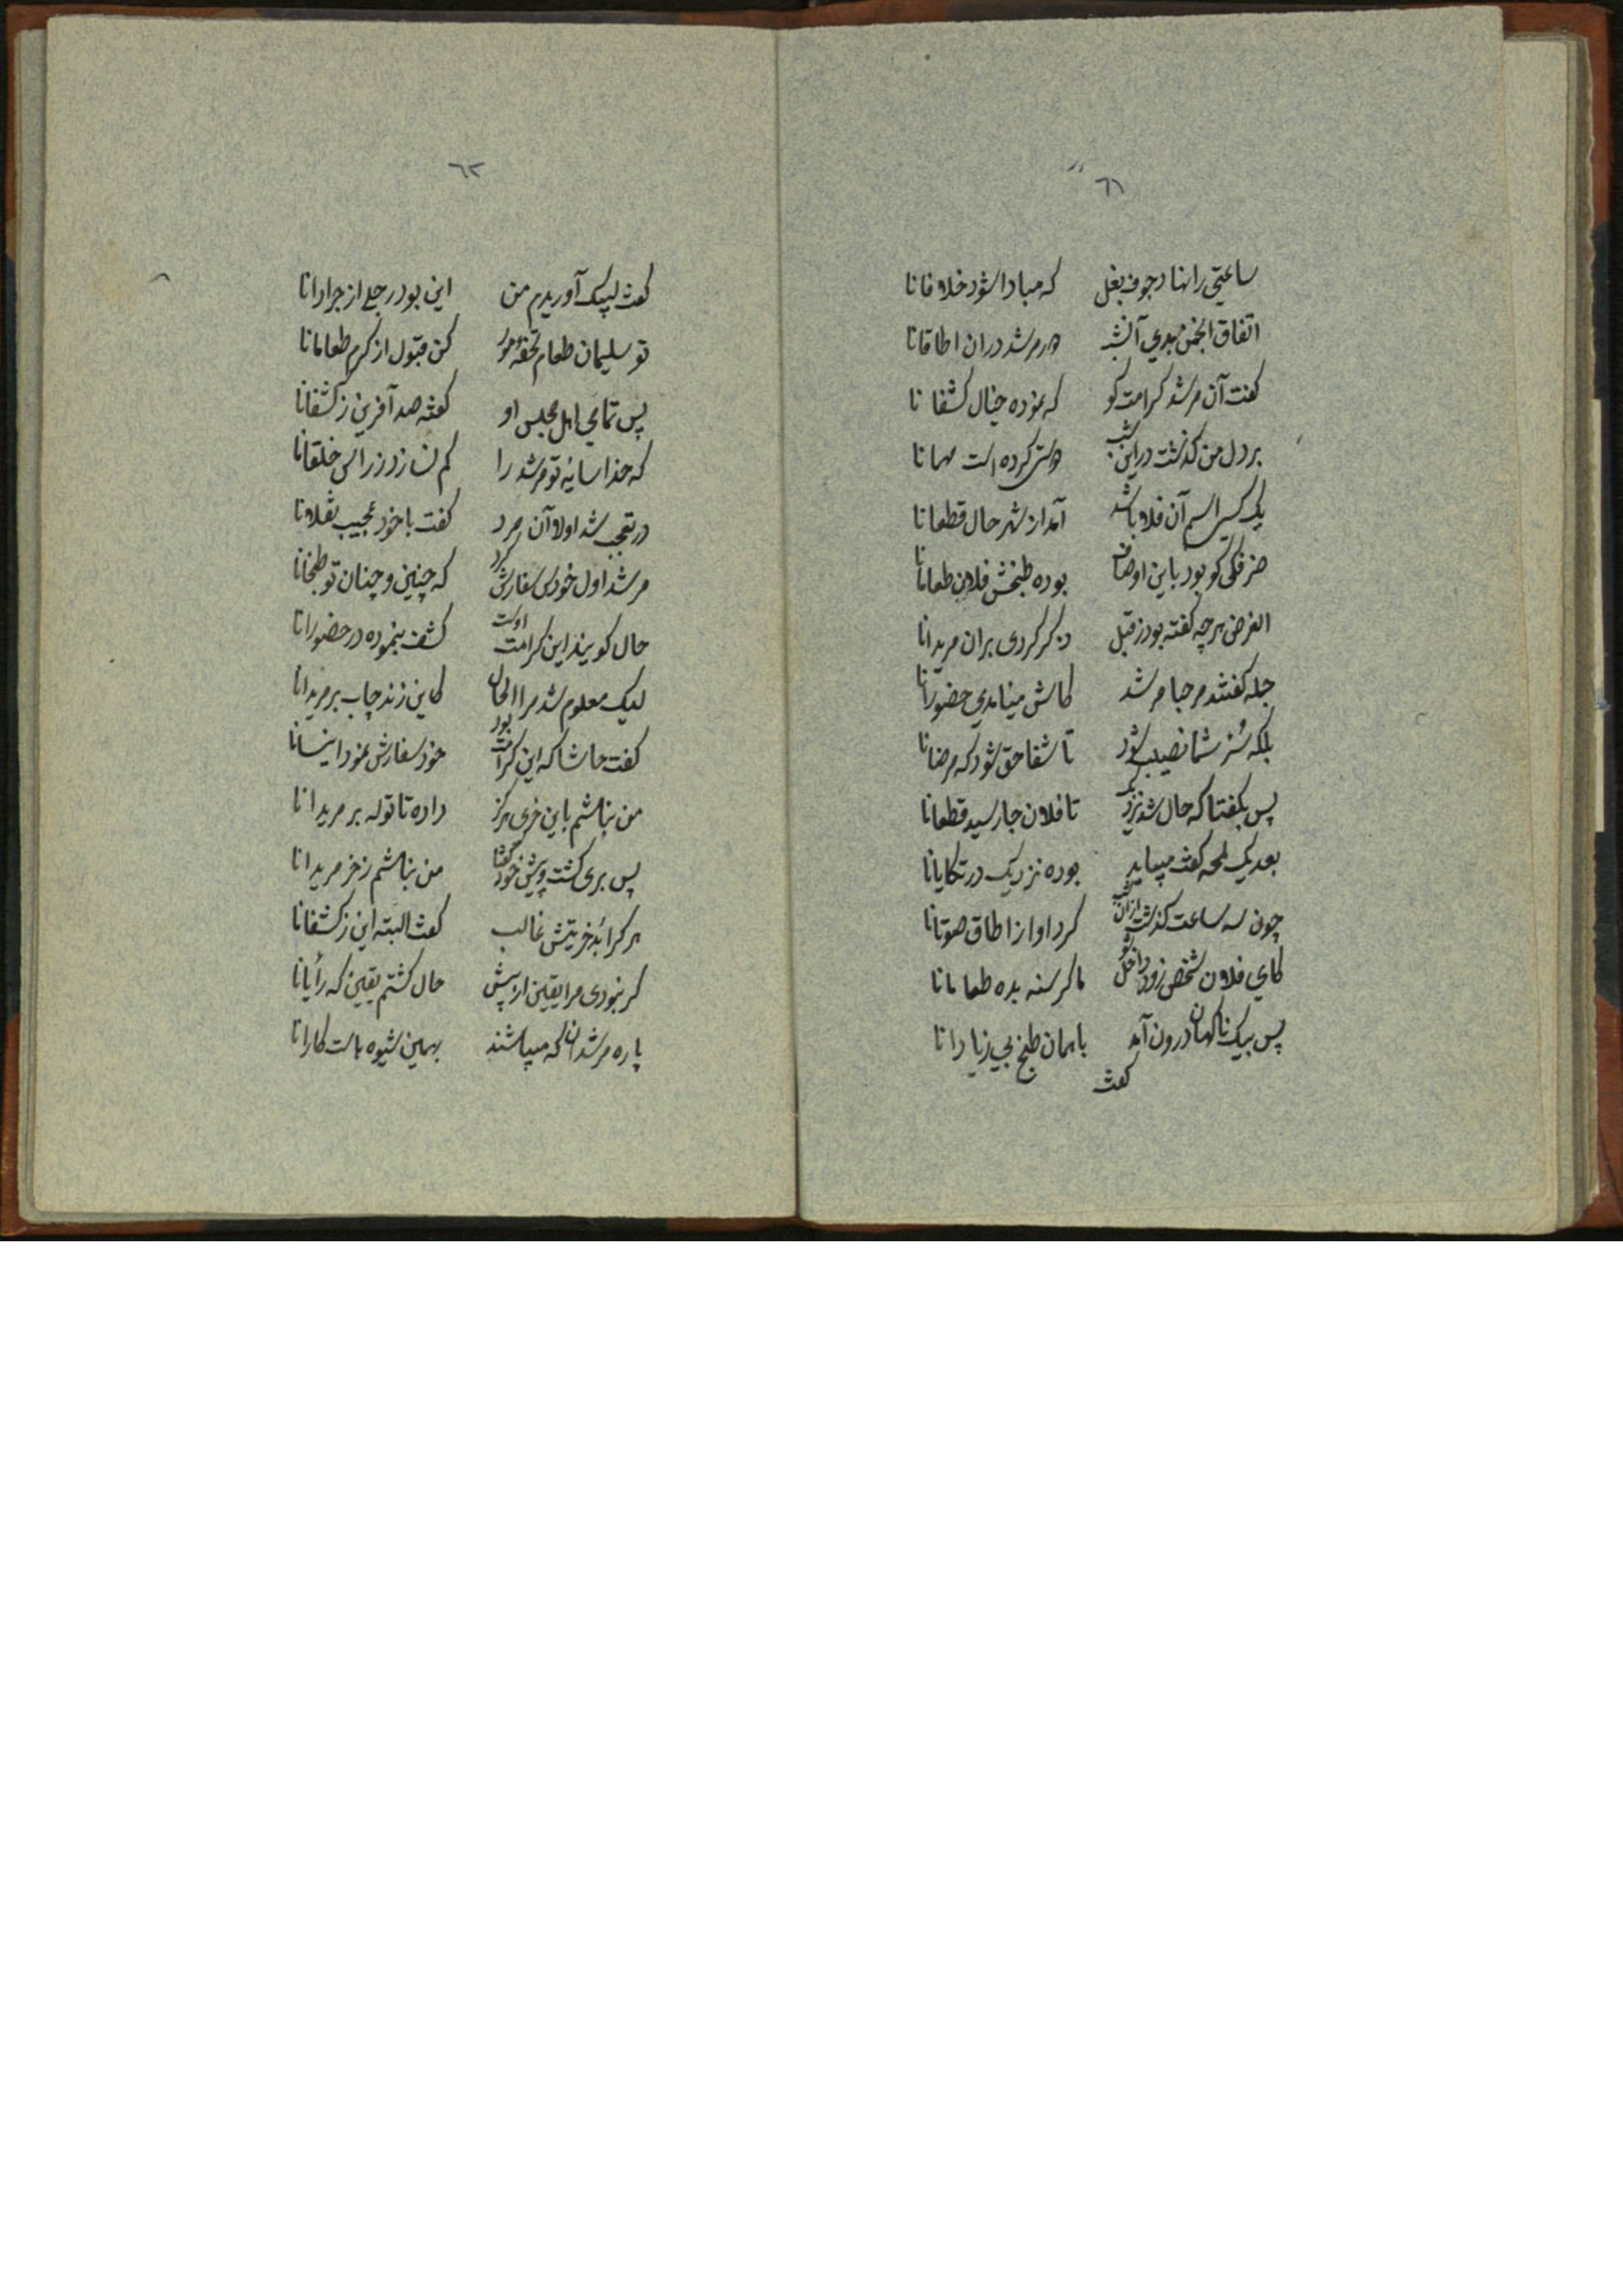 ٦١
ساعتی را نهاد جوف بغل که مبادا شود خلافانا
اتفاق انجمن بدی آنشب در مرشد دران اطاقانا
گفت آن مرشد کرامت گو که نموده خیال کشفانا
بر دل من گذشت در این شب کرده است مهمانا
یک کسی اسم آن فلان باشد آمد از شهر حال قطعانا
خرفکی کو بود باین اوصاف بوده طبخش فلان طعامانا
الغرض هرچه گفته بود ز قبل ذکر کردی بران مریدانا
جمله گفتند مرحبا مرشد کاش مینامدی حضورانا
بلکه سؤر شما نصیب شود تا شفا حق شود که مرضانا
پس بگفتا که حال شد نزدیک تا فلان جا رسید قطعانا
بعد یک لمحه گفت میباید بوده نزدیک در تکایانا
چون سه ساعت گذشت ازان شب کرد اواز از اطاق صوتانا
کای فلان شخص زود داخل شو ما گرسنه بده طعامانا
پس بیک ناگهان درون آمد با همان طبخ بی زیادانا
گفت
٦٢
گفت لبیک آوریدم من این بود رجلی از جرادانا
تو سلیمان طعام تحفهٔ مور کن قبول از کرم طعامانا
پس تمامی اهل مجلس او گفته صد آفرین ز کشفانا
که خدا سایهٔ تو مرشد را کم نسازد ز راس خلقانا
در تعجب شد اولا آن مرد گفت با خود عجیب نقلانا
مرشد اول خودش سفارش کرد که چنین و چنان تو طبخانا
حال گویند این کرامت اوست کشف بنموده در حضورانا
لیک معلوم شد مرا الحال کاین زند چاپ بر مریدانا
گفت حاشا که این کرامت بود خود سفارش نمود اینسانا
من نباشم باین خری هرگز داده تا توله بر مریدانا
پس بری گشت و پیش خود گفتا من نباشم ز خر مریدانا
هر کرا بد خریتش غالب گفت البته این ز کشفانا
گر نبودی مرا یقین از پیش حال گشتم یقین که رأیانا
پاره مرشدان که میباشند بهمین شیوه است کارانا